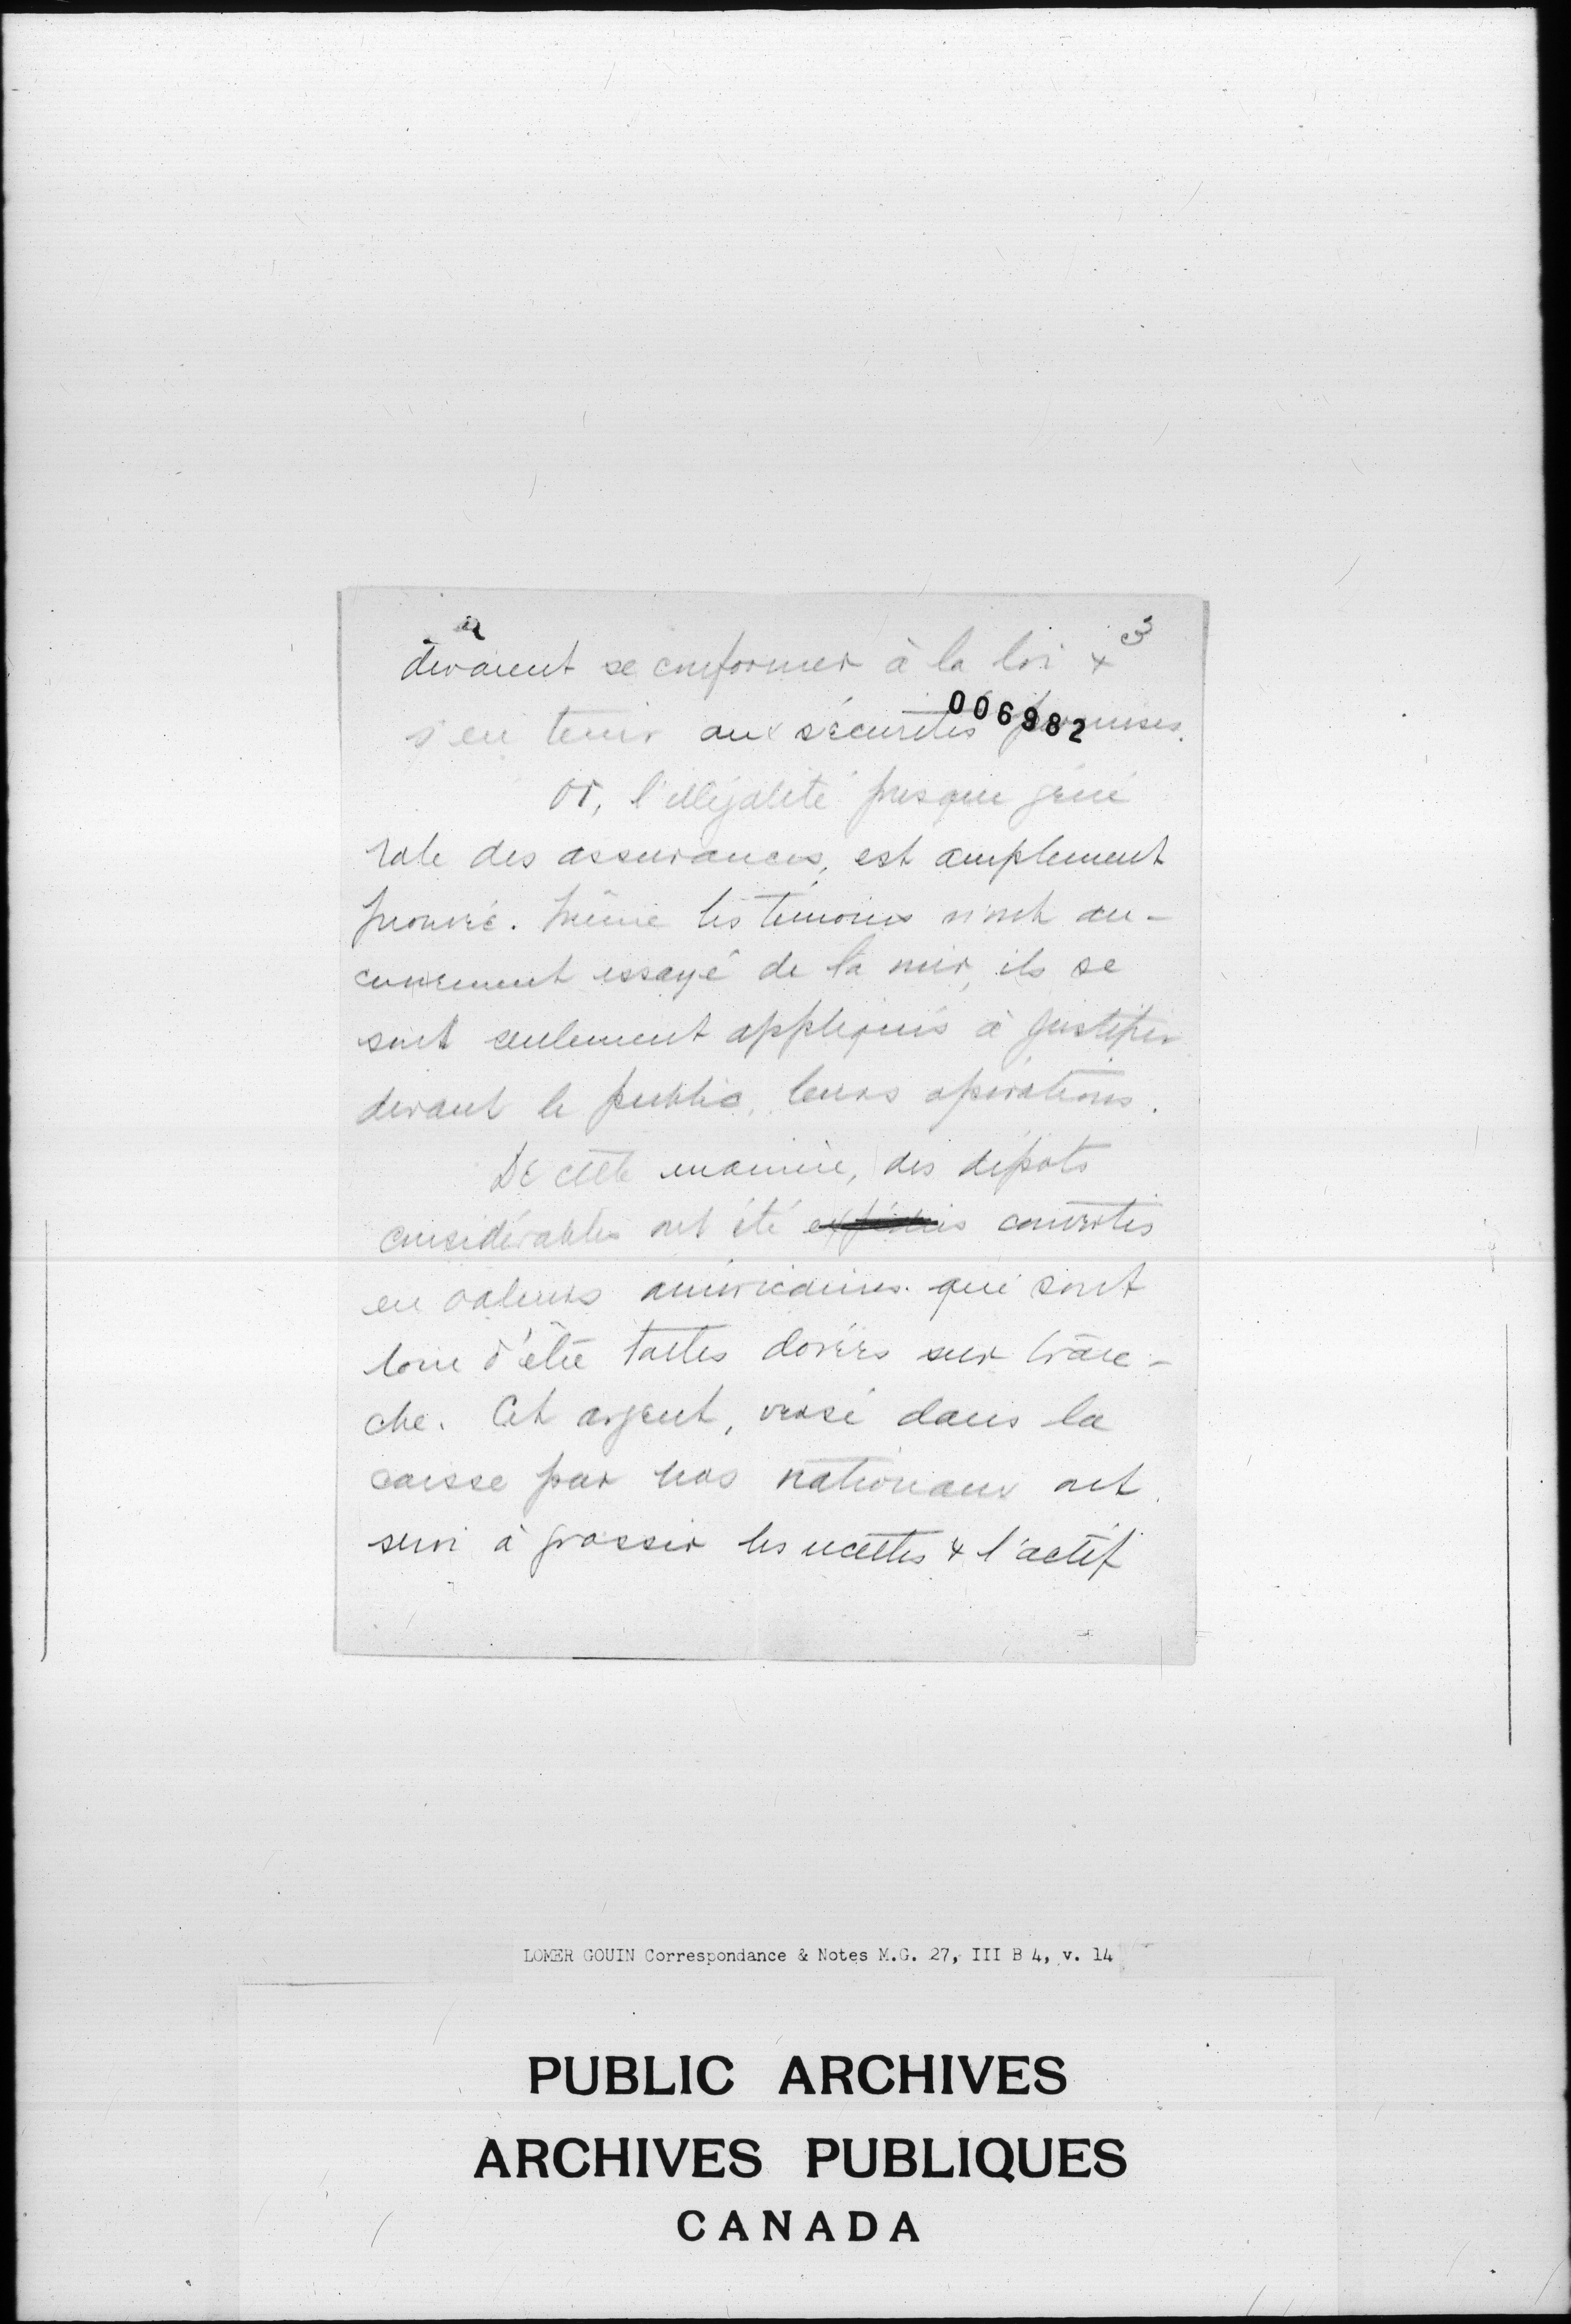 3
devaient se conformer à la loi &
s'en tenir aux sécurités permises.
006982
Or, l'illégalité presque géné
rale des assurances, est amplement
prouvée. Même les témoins n'ont au-
cunement essayé de la nier, ils se
sont seulement appliqués à justifier
devant le public, leurs opérations.
De cette manière, des dépots
considérables ont été expédiés convertis
en valeurs américaines qui sont
loin d'être toutes dorées sur tran-
che. Cet argent, versé dans la
caisse par nos nationaux ont
servi à grossir les recettes & l'actif
LOMER GOUIN Correspondance & Notes M.G. 27, III B 4, v. 14
PUBLIC ARCHIVES
ARCHIVES PUBLIQUES
CANADA